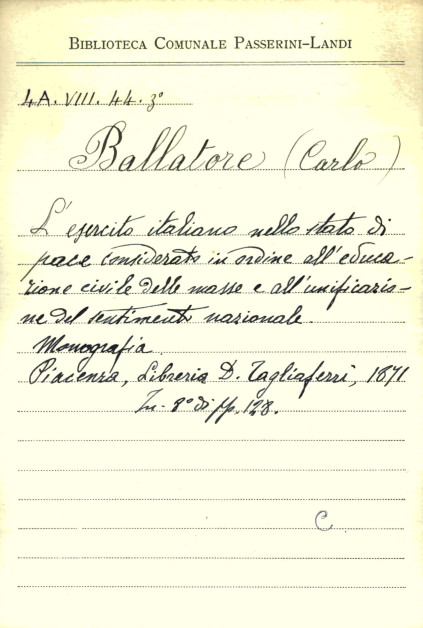 BIBLIOTECA COMUNALE PASSERINI-LANDI
4A. VIII. 44. 3°
Ballatore (Carlo)
L'esercito italiano nello stato di
pace considerato in ordine all'educa-
zione civile delle masse e all'unificazio-
ne del sentimento nazionale.
Monografia.
Piacenza, Libreria D. Tagliaferri, 1871
In-8° di pp. 128.
C